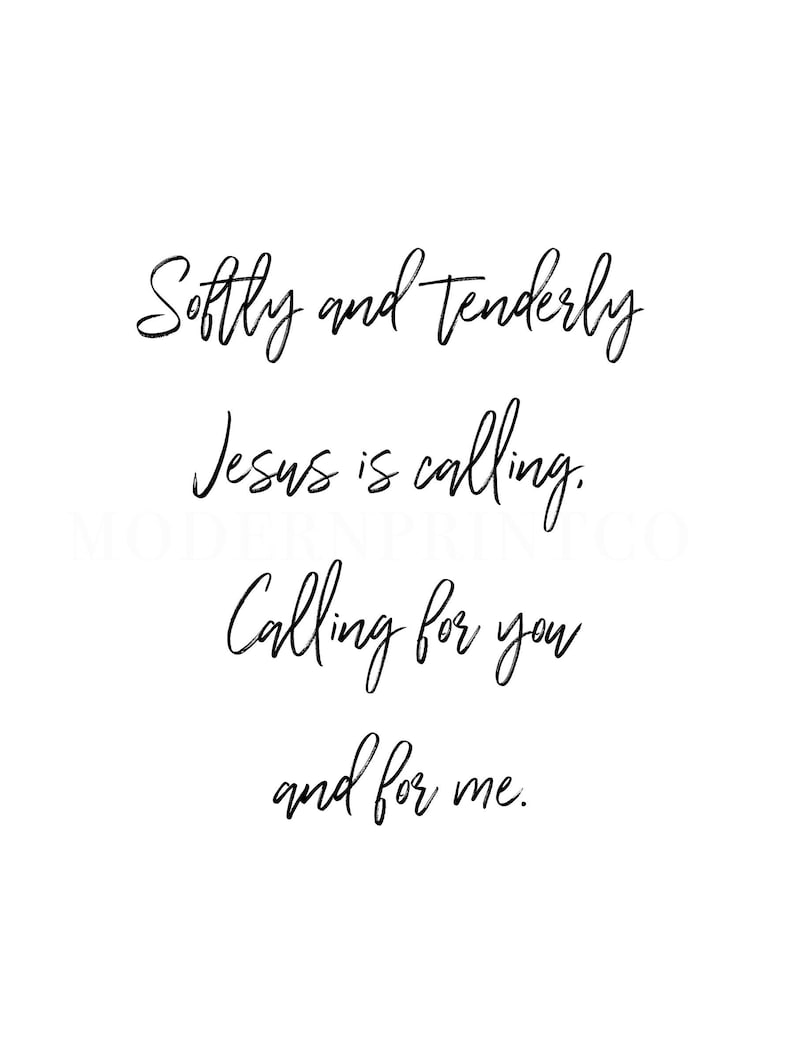 Softly and tenderly
Jesus is calling,
MODERNPRINTCO
Calling for you
and for me.